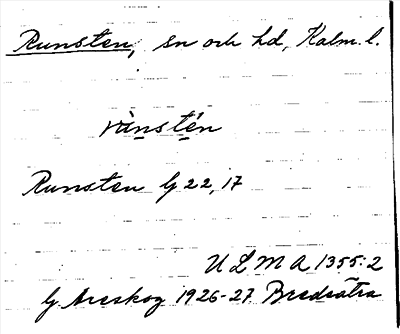 Runsten, sn och hd, Kalm. l.
rùnstén
Runsten G 22,17
ULMA 1355:2
G Areskog 1926-27 Bredsätra